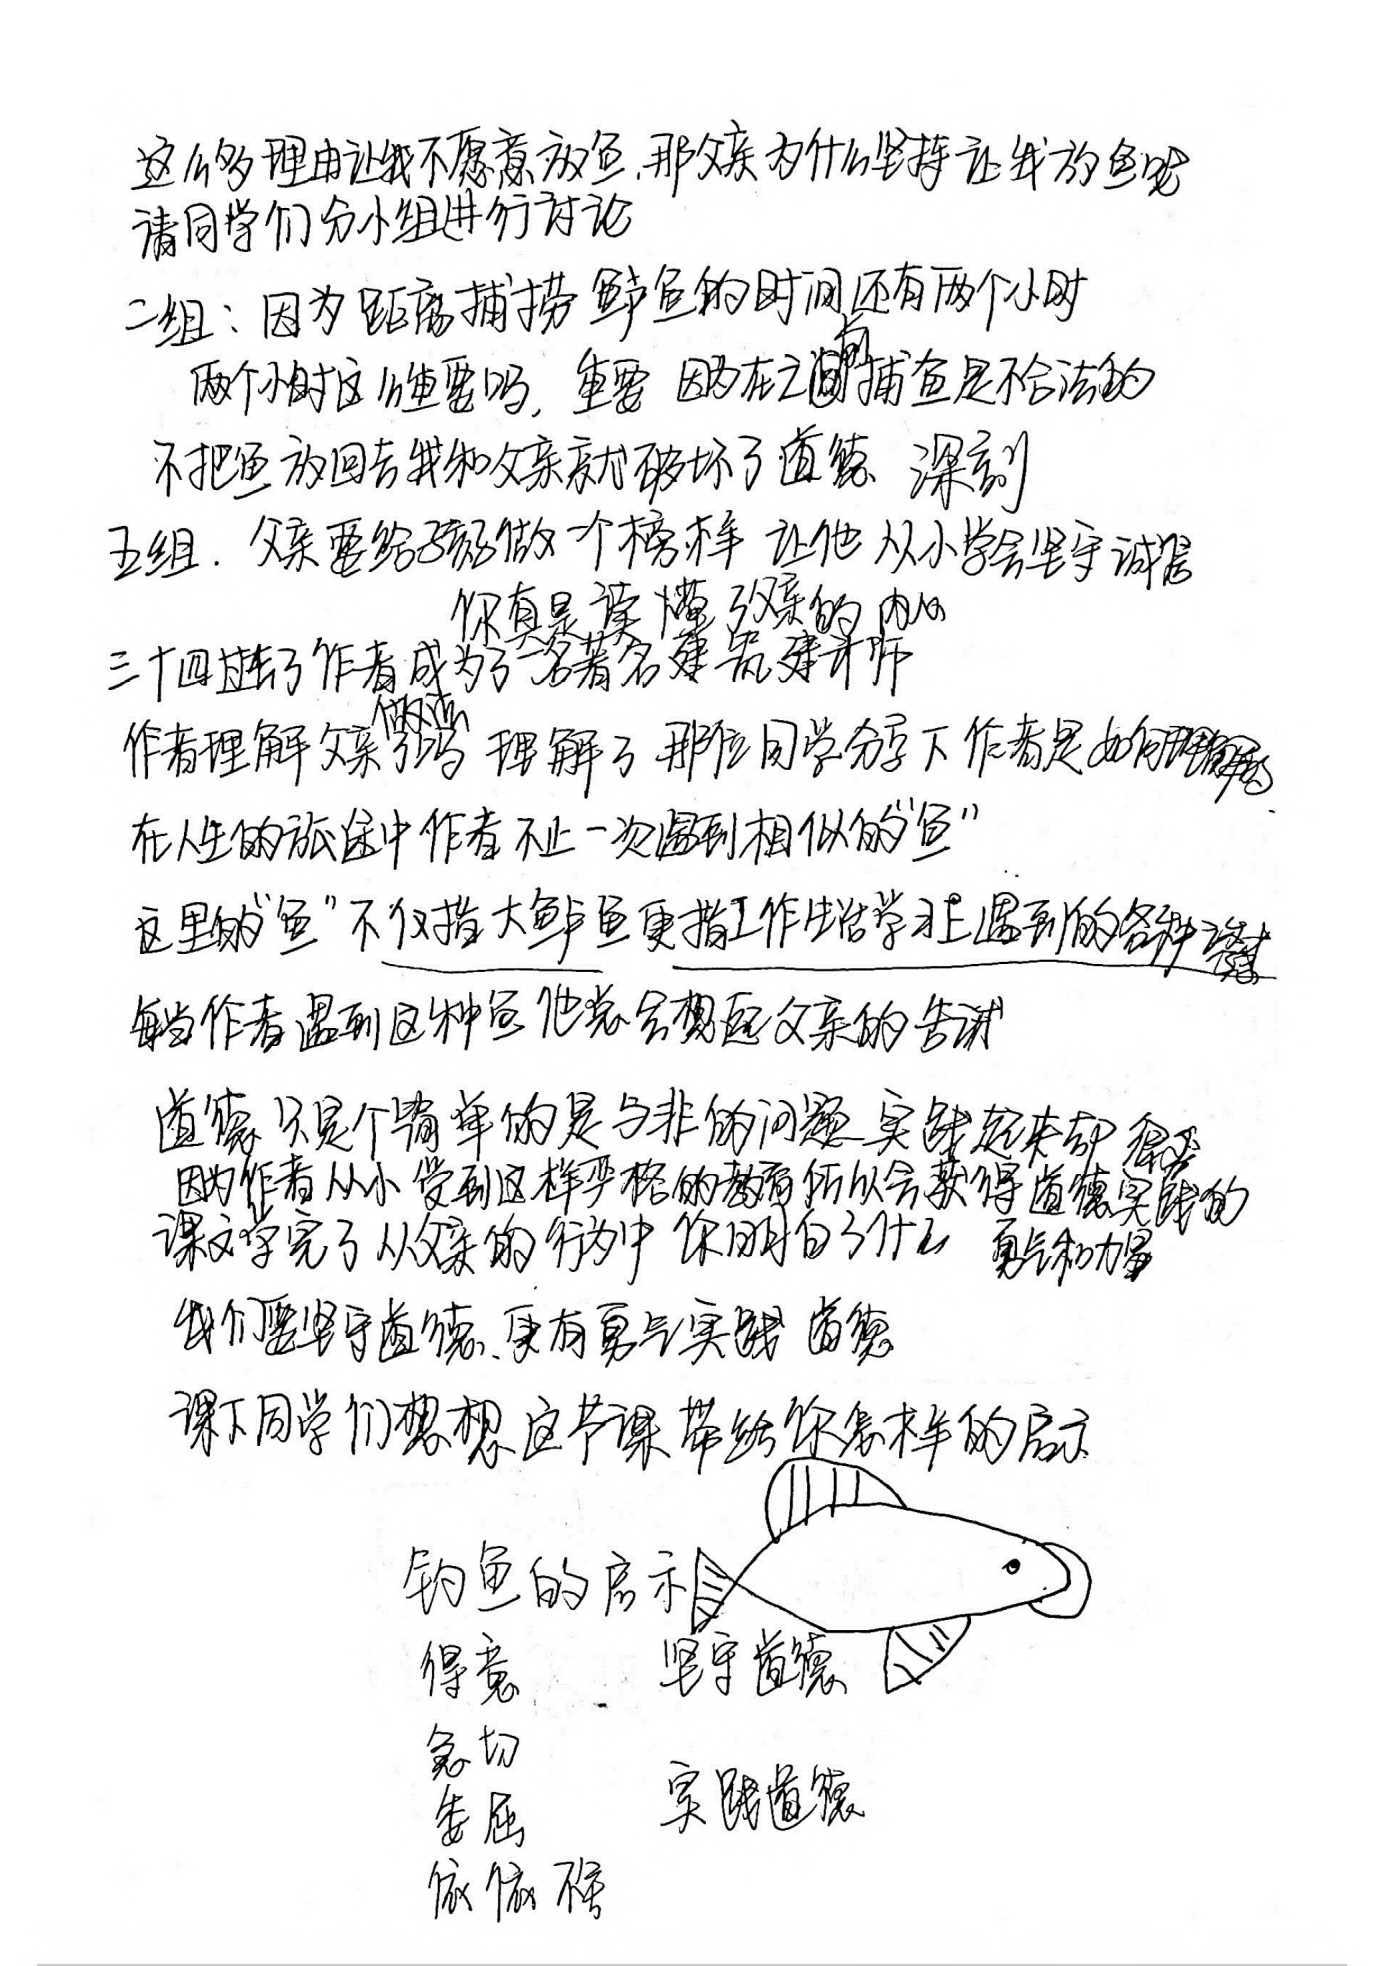 这么多理由让我不愿意放鱼,那父亲为什么坚持让我放鱼呢
请同学们分小组进行讨论
二组:因为距离捕捞鲈鱼的时间还有两个小时
两个小时这么重要吗,重要 因为在之前捕鱼是不合法的
不把鱼放回去我和父亲就破坏了道德 深刻
五组.父亲要给孩子做一个榜样 让他从小学会坚守诚信
你真是读懂了父亲的内心
三十四过去了作者成为了一名著名建筑建计师
作者理解父亲做法了吗 理解了 那位同学分享下作者是如何理解的
在人生的旅途中作者不止一次遇到相似的“鱼”
这里的“鱼”不仅指大鲈鱼更指工作生活学习上遇到的各种诱惑
每当作者遇到这种鱼他总会想起父亲的告诫
道德只是个简单的是与非的问题 实践起来却很难
因为作者从小受到这样严格的教育所以会获得道德实践的
勇气和力量
课文学完了从父亲的行为中你明白了什么
我们要坚守道德、更有勇气实践道德
课下同学们想想这节课带给你怎样的启示
钓鱼的启示
得意 坚守道德
急切
委屈 实践道德
依依不舍